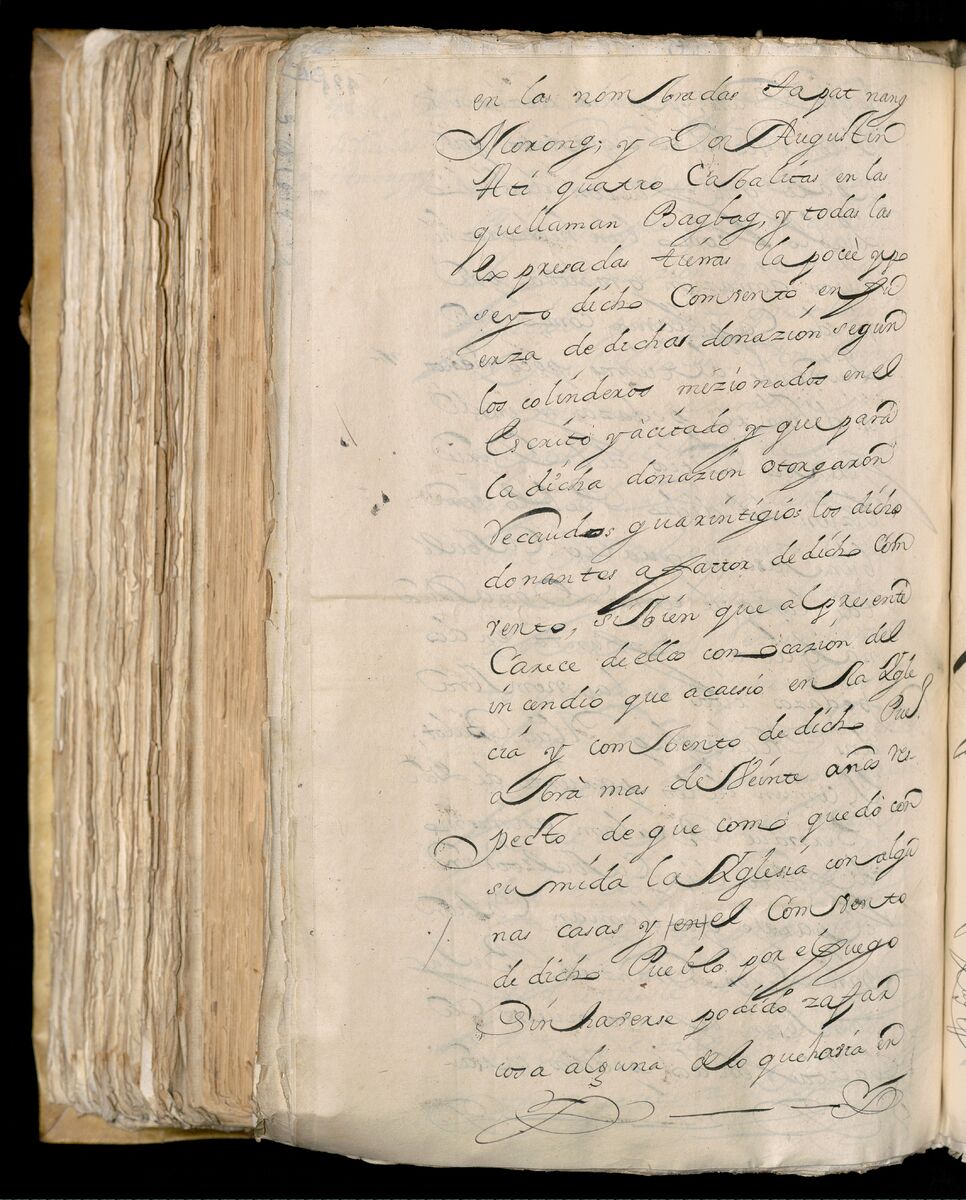 en las nombradas tapat nang
Morong; y a Don Augustin
Ati quatro Cabalitas en las
que llaman Bagbag, y todas las
expresadas tierras la poceè y po
seyo dicho Comvento en fu
erza de dichas donazión según
los colinderos mezionados en el
Escrito ya citado y que para
la dicha donazión otorgarón
recaudos guarintigios los dicho
donantes a favor de dicho Com
vento, si bien que al presente
Carece de ellos con ocazión del
incendio que acaisió en la Ygle
cia y combento de dicho Puel.
abrà mas de Veinte años res-
pecto de que como quedó con
sumida la Yglesia con algu
nas casas y (en) el Comvento
de dicho Pueblo por el fuego
Sin haverse podido zafar
cosa alguna de lo que havia en